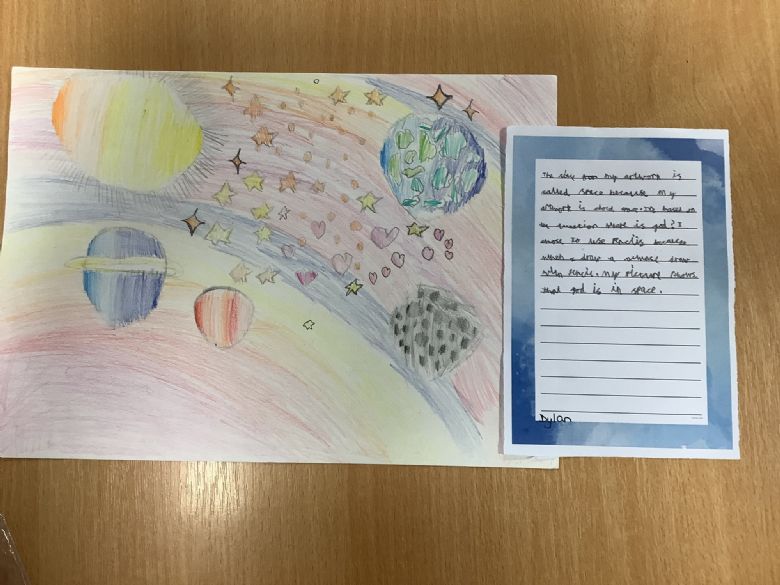 The story from my artwork is
called space because my
artwork is about space. It's based on
the question where is god? I
chose to use Pencils because
when I draw I always draw
with Pencils. my Picture shows
that god is in space.
Dylan